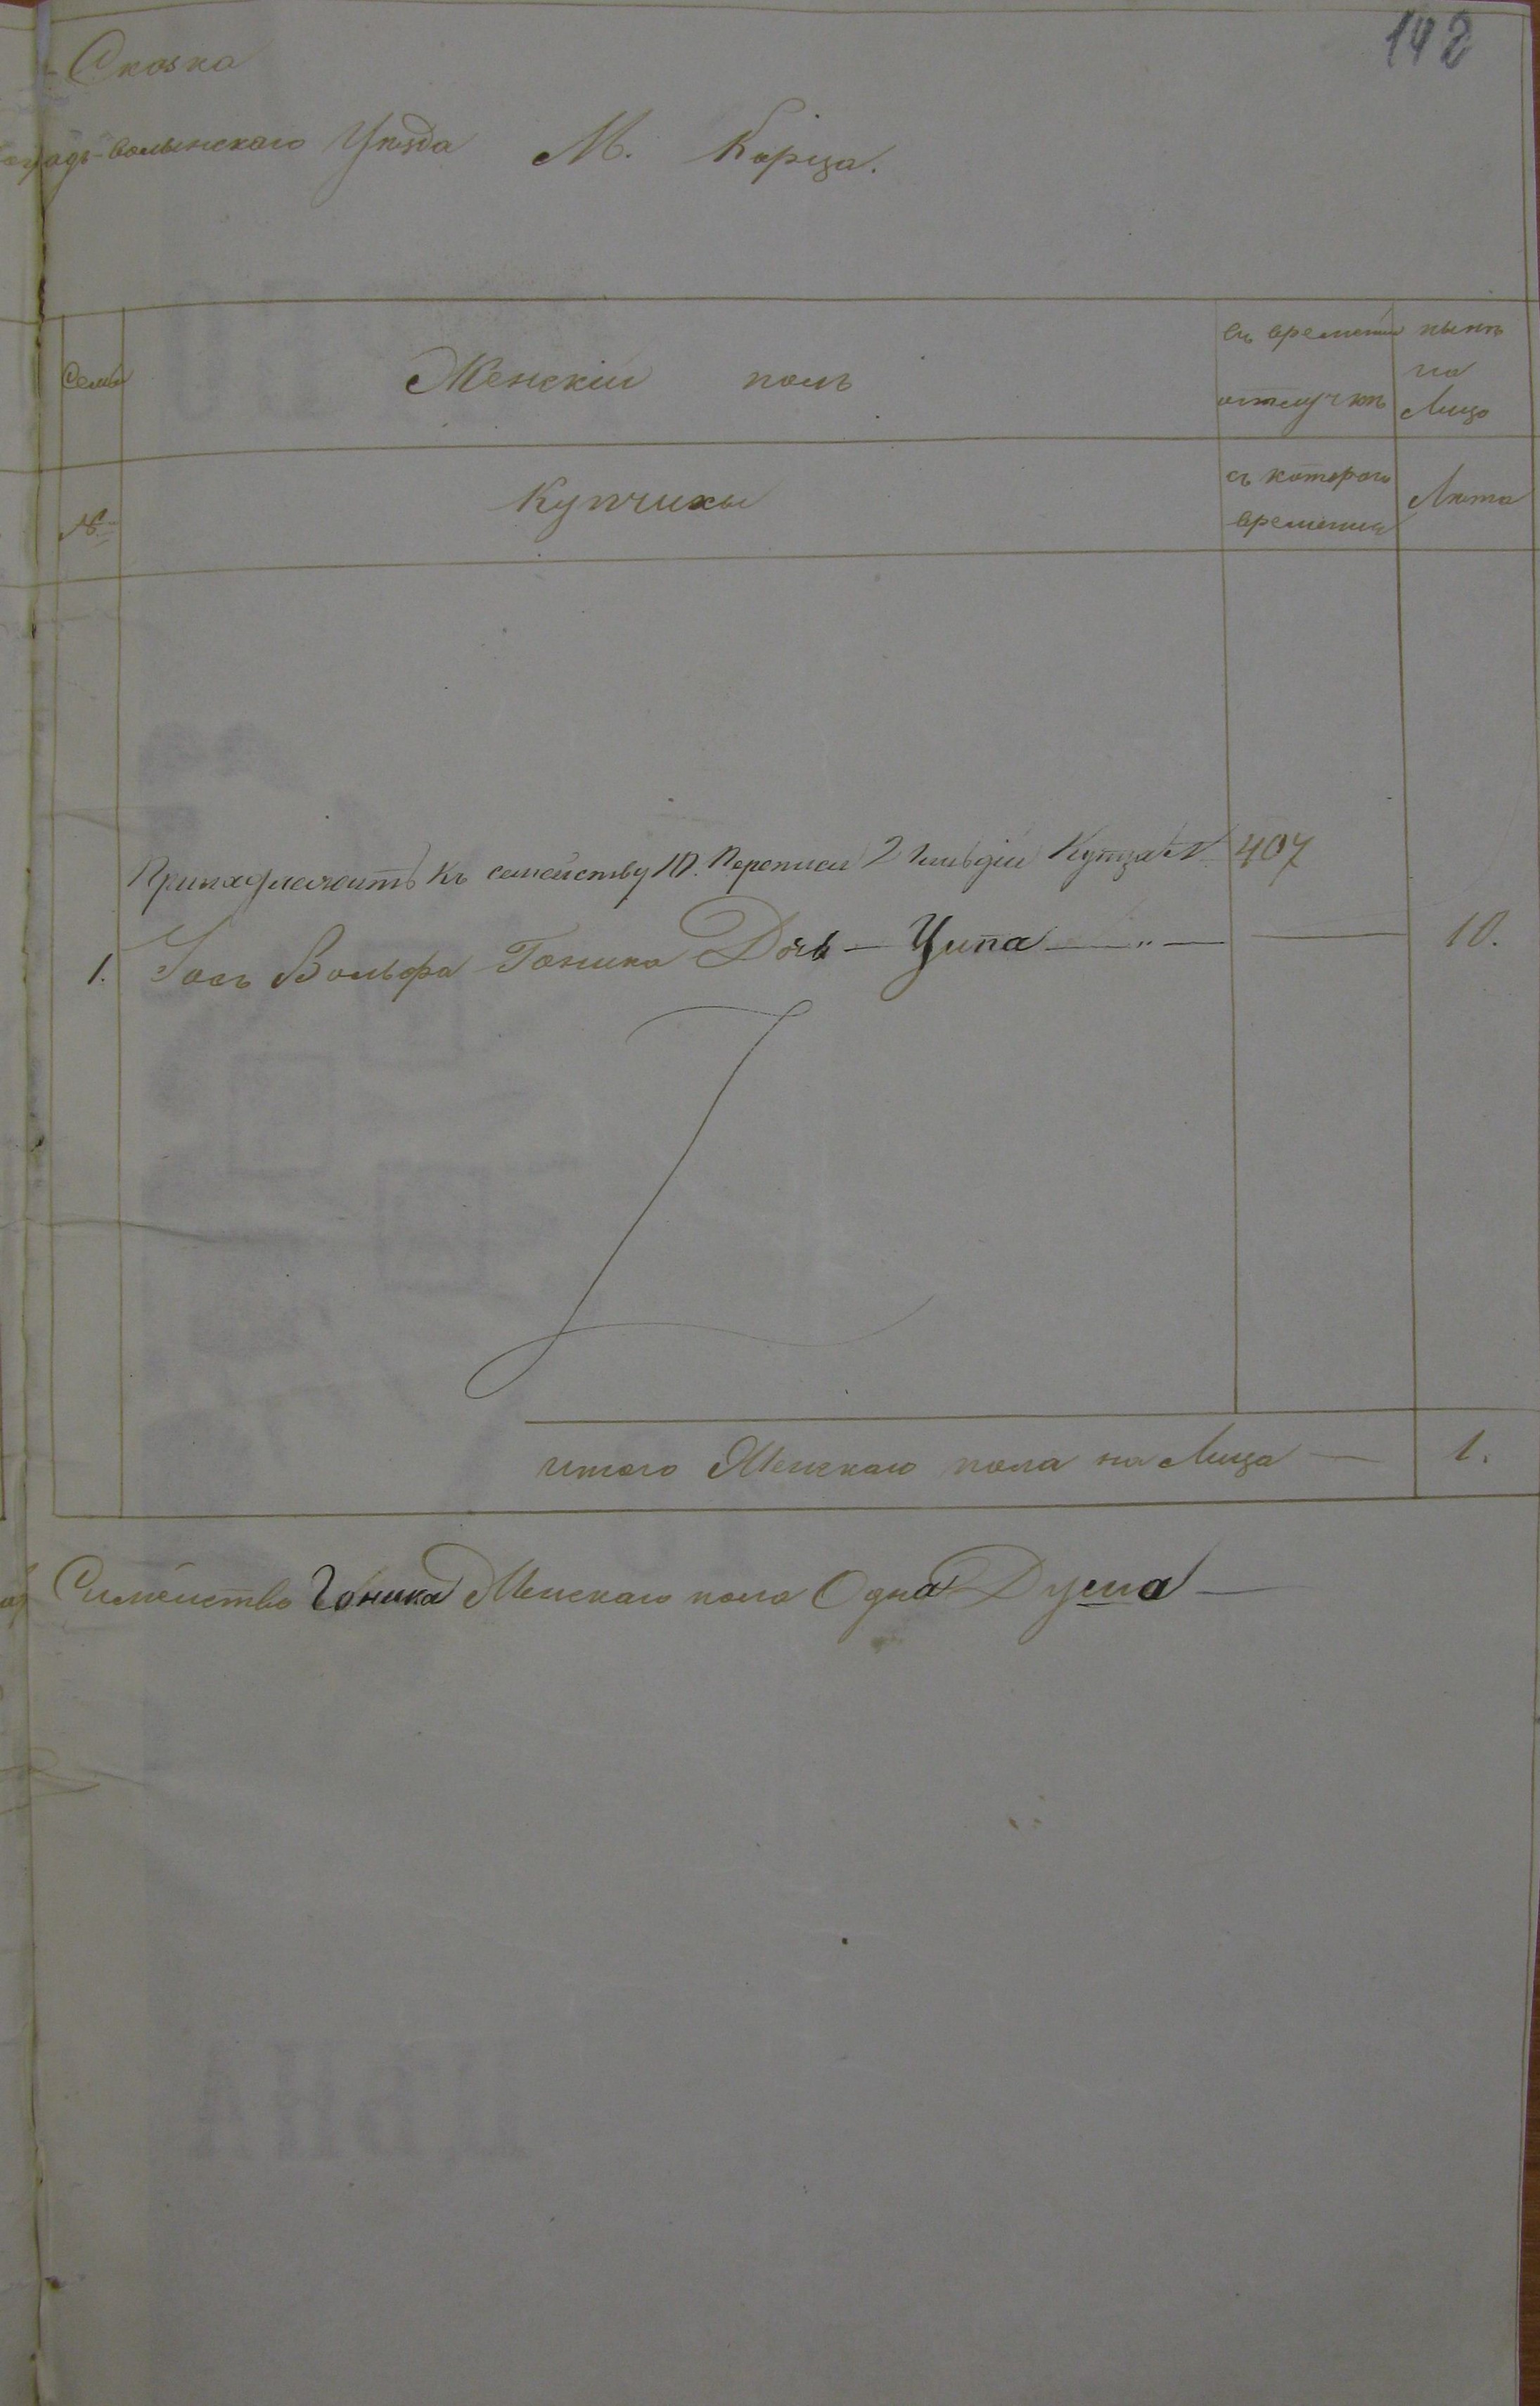 142
Сказка
градъ-волынскаго Уѣзда М. Корца.
Семьи
Женскій полъ
въ временн отлучкѣ
нынѣ на Лицо
№
Купчихы
съ котораго времени
Лѣта
Принадлежитъ къ семейству 10. Переписи 2 Гильдіи Купца № 407
1. Іось Вольфа Гоника Дочь — Ципа — „ — 10.
итого Женскаго пола на Лицо — 1.
Симейство Гоника Женскаго пола Одна Душа —